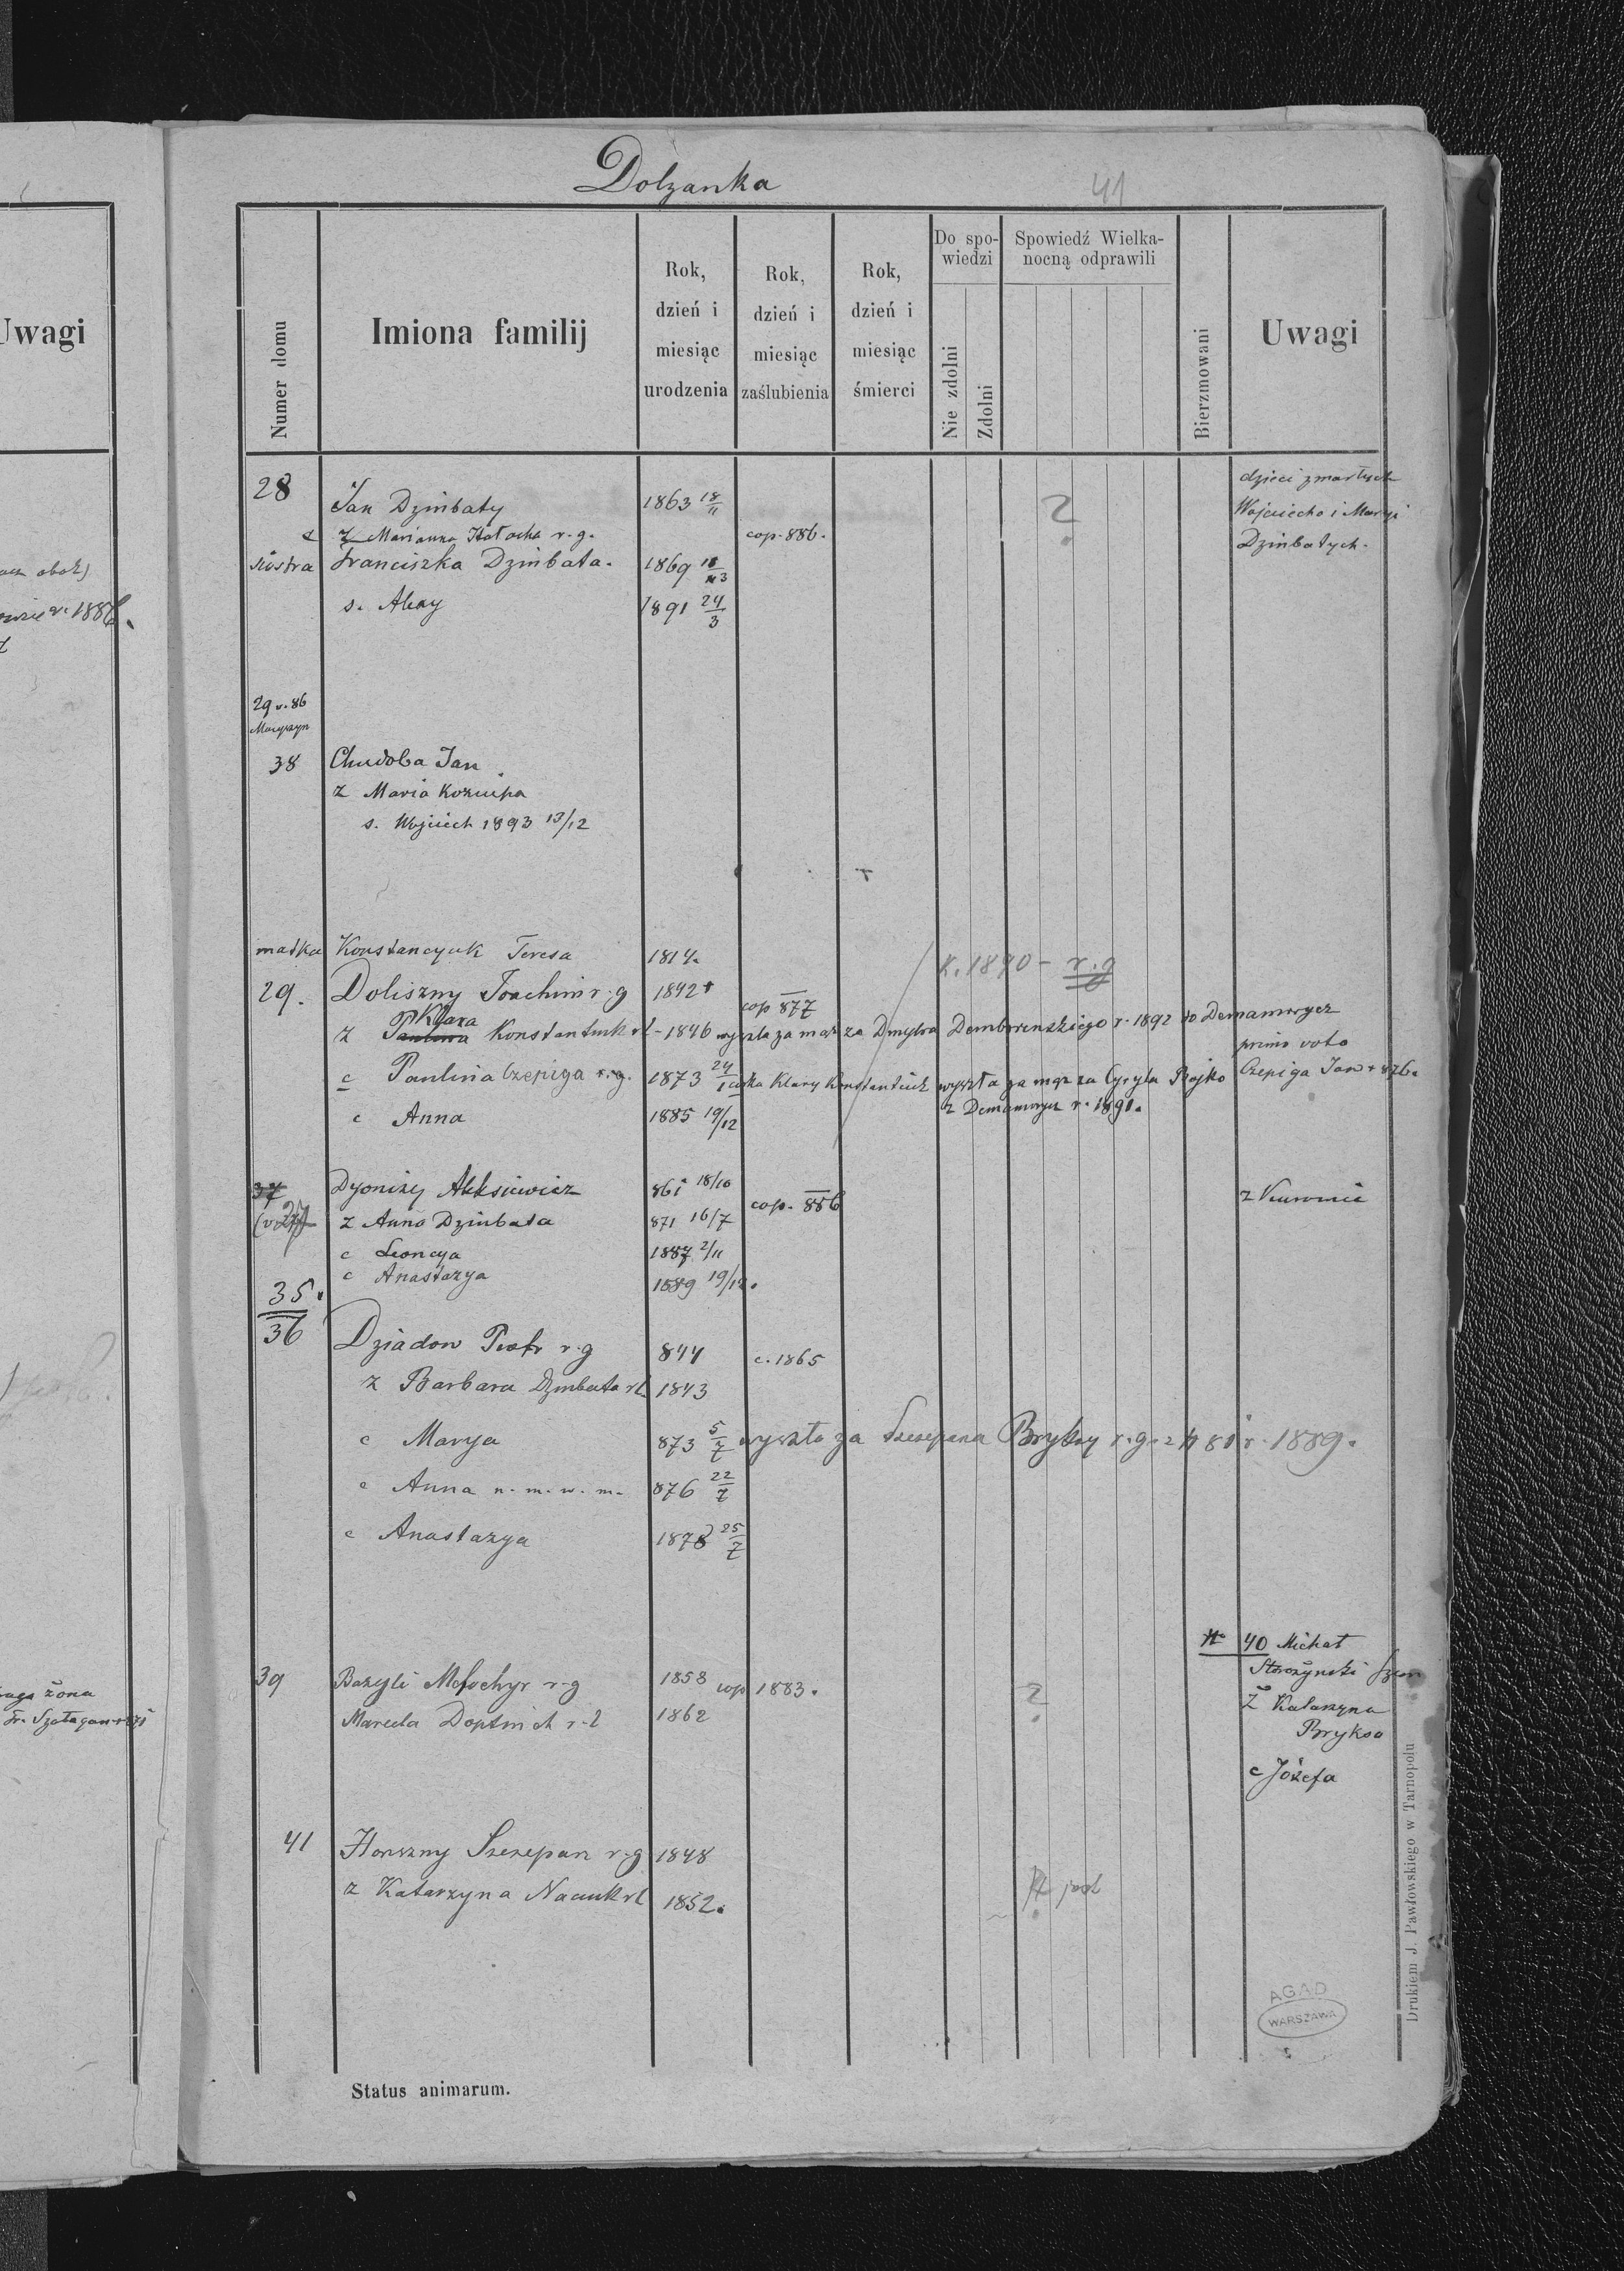 Dolzanka
41
Numer domu
Imiona familij
Rok, dzień i miesiąc urodzenia
Rok, dzień i miesiąc zaślubienia
Rok, dzień i miesiąc śmierci
Do spowiedzi
Nie zdolni
Zdolni
Spowiedź Wielkanocną odprawili
Bierzmowani
Uwagi
Uwagi
28 Jan Dzinbaty 1863 18/11
dzieci zmarłych
Wojciecha i Maryi
Dzinbatych.
z Marianna r.g. cop. 886.
siostra Franciszka Dzinbata. 1869
s. 1891 24/3
29 v. 86
38 Chudoba Jan
z Maria
s. Wojciech 1893 13/12
matka Konstanczuk Teresa 1814.
1890 - r.g
29. Doliszny Joachim r.g 1842 cop 877
z Paulina Klara Konstantiuk rł - 1846 wyszła za mąż za Dmytra r. 1892 do Denamorycz
primo voto
c Paulina Czepiga r.g. 1873 24/1 córka Klary Konstantiuk wyszła za mąż za Cyryla Bojko
Czepiga Jan + 876.
z Denamorycz r. 1891.
c Anna 1885 19/12
37 Dyonizy Aleksiewicz 861 18/10
z Anna Dzinbata 871 16/7 cop. 886
c Leoncya 1887 2/11
c Anastazya 1889 19/12.
35.
36 Dziadow Piotr r.g 844 c. 1865
z Barbara Dzinbata rł 1843
c Marya 873 5/7 wyszła za Szczepana Bryksy r.g. z 81 r. 1889.
c Anna n. m. w. m. 876 22/7
c Anastazya 1878 25/7
40 Michał
Starożynski
Ż Katarzyna
Bryksa
c Józefa
39 Bazyli r-g 1858 cop 1883.
Marcela r-ł 1862
?
41 Horszny Szczepan r-g 1848
z Katarzyna rł 1852.
żona
Status animarum.
AGAD
WARSZAWA
Drukiem J. Pawłowskiego w Tarnopolu